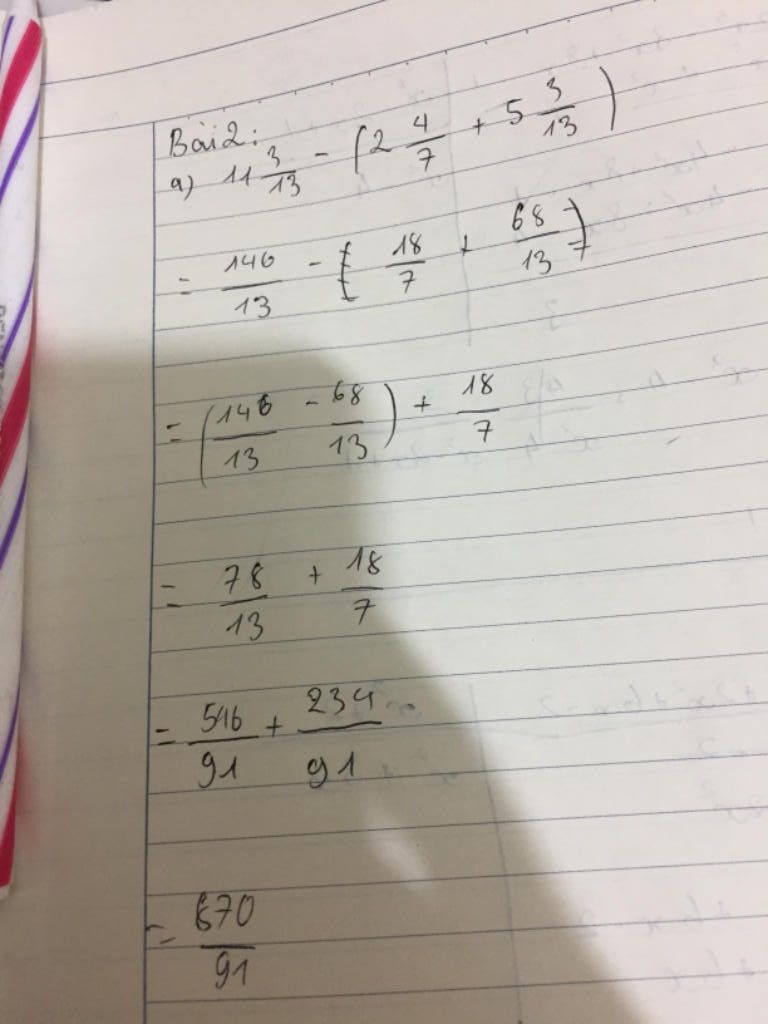 Bài 2:
a) 11 3/13 - (2 4/7 + 5 3/13)
= 146/13 - (18/7 + 68/13)
= (146/13 - 68/13) + 18/7
= 78/13 + 18/7
= 546/91 + 234/91
= 670/91